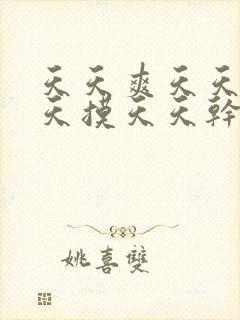 天天爽天天
天摸天天幹
姚喜雙